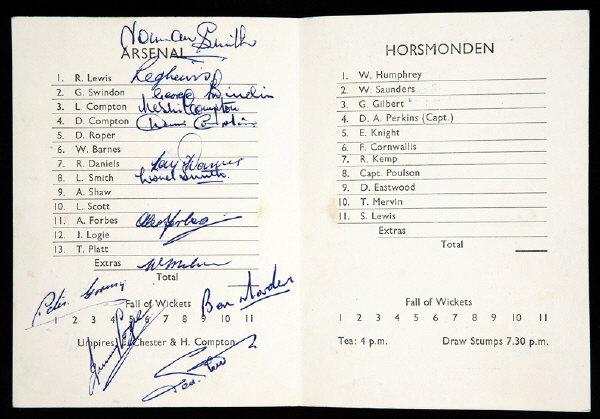 Norman Smith
ARSENAL
1. R. Lewis Reg Lewis
2. G. Swindon George Swindin
3. L. Compton Leslie Compton
4. D. Compton Denis Compton
5. D. Roper
6. W. Barnes
7. R. Daniels Ray Daniels
8. L. Smith Lionel Smith
9. A. Shaw
10. L. Scott
11. A. Forbes Alex Forbes
12. J. Logie
13. T. Platt
Extras W Milne
Total
Fall of Wickets
Ben Marden
1 2 3 4 5 6 7 8 9 10 11
Umpires: Chester & H. Compton
HORSMONDEN
1. W. Humphrey
2. W. Saunders
3. G. Gilbert
4. D. A. Perkins (Capt.)
5. E. Knight
6. F. Cornwallis
7. R. Kemp
8. Capt. Poulson
9. D. Eastwood
10. T. Mervin
11. S. Lewis
Extras
Total
Fall of Wickets
1 2 3 4 5 6 7 8 9 10 11
Tea: 4 p.m. Draw Stumps 7.30 p.m.